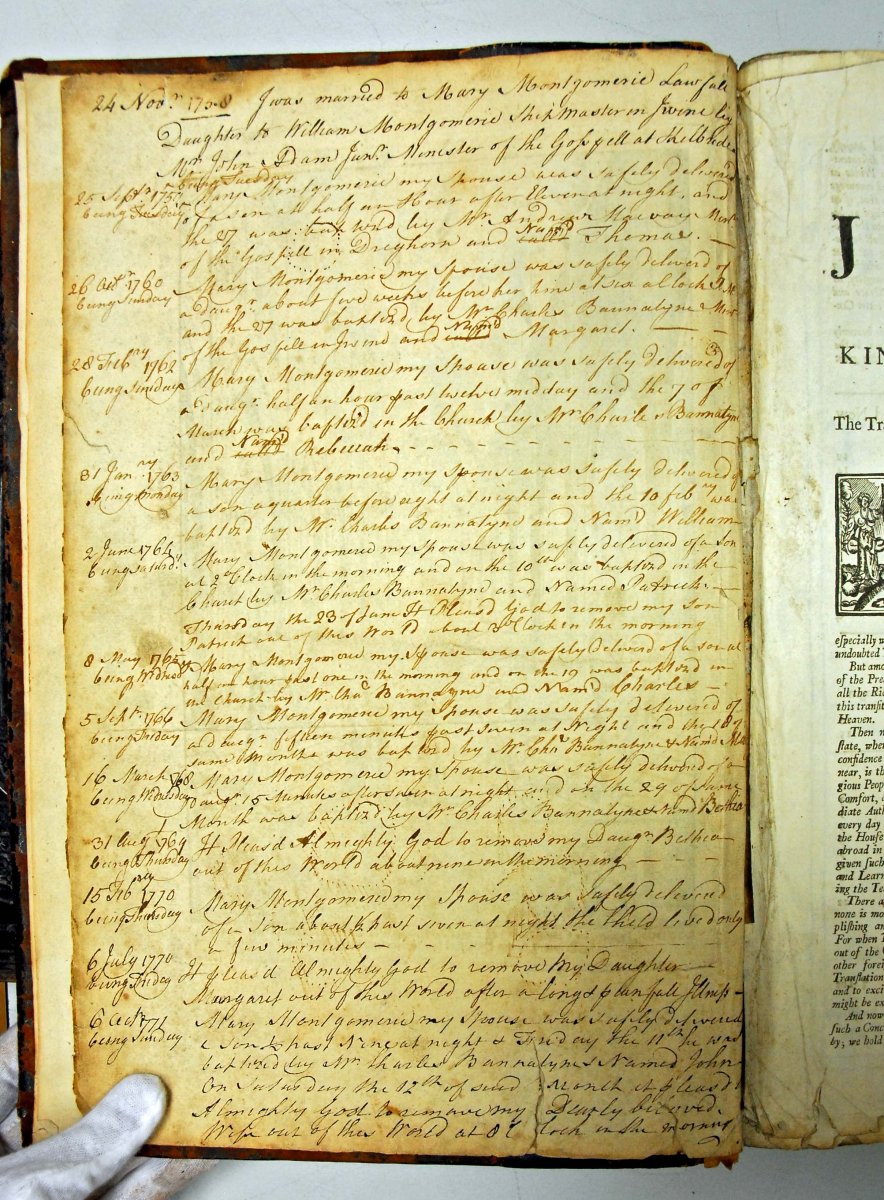 24 Novr. 1758 I was married to Mary Montgomerie Lawfull
Daughter to William Montgomerie Shipmaster in Irvine by
Mr. John Adam Junr. Minister of the Gospell at Kilbride
being Tuesday
25 Septr.
being Tuesday
Mary Montgomerie my Spouse was safely delivered
of a son at half an Hour after Eleven at night, and
the 27 was baptized by Mr. Andrew Minr.
of the Gospell in Dreghorn and Namd calld Thomas.
26 Octr. 1760
being Sunday
Mary Montgomerie my Spouse was safely deliverd of
a daugr. about five weeks before her time at six a clock
and the 27 was baptized by Mr. Charles Bannatyne Minr.
of the Gospell in and Namd calld Margaret.
28 Febry. 1762
being Sunday
Mary Montgomerie my Spouse was safely delivered of
a daugr. half an hour past twelve midday and the 7 of
March was baptized in the Church by Mr. Charles Bannatyne
and Namd calld Rebeccah.
31 Janry. 1763
being Monday
Mary Montgomerie my Spouse was safely delivered of
a son a quarter before eght at night and the 10 Febry was
baptized by Mr. Charles Bannatyne and Namd William
2 June 1764
being Saturdy.
Mary Montgomerie my Spouse was safely delivered of a son
at 2 o'Clock in the morning and on the 10th was baptized in the
Church by Mr. Charles Bannatyne and Named Patrick.
Thursday the 23 of June It Pleasd God to remove my son
Patrick out of this World about 3 o'Clock in the morning
8 May 1765
being Wednsdy
Mary Montgomerie my Spouse was safely deliverd of a son at
half an hour past one in the morning and on the 19 was baptized in
the Church by Mr. Chas. Bannatyne and Namd Charles
5 Septr. 1766
being Friday
Mary Montgomerie my Spouse was safely delivered of
a daugr. fifteen minutes past seven at Night and the of
same Month was baptized by Mr. Chs. Bannatyne & Namd
16 March 1768
being Wednesday
Mary Montgomerie my Spouse was safely deliverd of a
Daugr. 15 Minutes after seven at night and on the 29 of same
Month was baptized by Mr. Charles Bannatyne & Namd Bethia
31 Augt. 1769
being Thursday
It Pleasd Almighty God to remove my Daugr. Bethia
out of this World about nine in the morning
15 Febry 1770
being Thursday
Mary Montgomerie my Spouse was safely delivered
of a son about ½ past seven at night the Child lived only
a few minutes
6 July 1770
being Friday
It pleasd Almighty God to remove My Daughter
Margaret out of this World after a long & plainfull Illness
6 Octr. 1771
being Sunday
Mary Montgomerie my Spouse was safely delivered
a son ½ past Nine at night & Friday the 11th he was
baptized by Mr. Charles Bannatyne & Named John
On Saturday the 12th of said Month it pleasd
Almighty God to remove my Dearly beloved
Wife out of this World at 8 o Clock in the morning
J
KIN
The Tra
especially w
undoubted T
But amo
of the Prea
all the Rich
this transit
Heaven.
Then n
state, when
confidence
near, is th
gious Peop
Comfort, a
diate Auth
every day
the House
abroad in
given such
and Learn
ing the Te
There a
none is mo
plishing an
For when Y
out of the O
other forei
Translation
and to excit
might be ex
And now
such a Conc
by; we hold